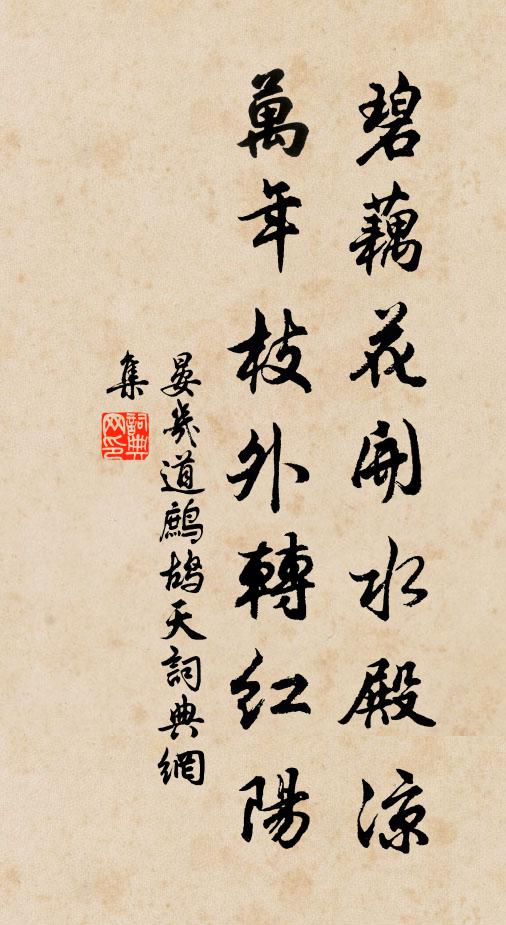 碧藕花開水殿涼
萬年枝外轉紅陽
晏幾道鷓鴣天詞典網
集
詞典网印